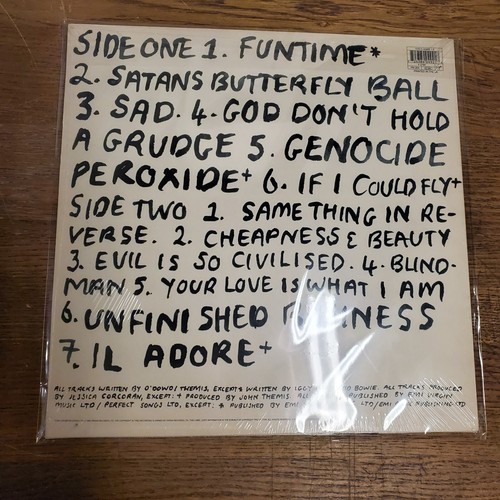 SIDE ONE 1. FUNTIME*
2. SATANS BUTTERFLY BALL
3. SAD. 4. GOD DON'T HOLD
A GRUDGE 5. GENOCIDE
PEROXIDE+ 6. IF I COULD FLY+
SIDE TWO 1. SAME THING IN RE-
VERSE. 2. CHEAPNESS & BEAUTY
3. EVIL IS SO CIVILISED. 4. BLIND-
MAN 5. YOUR LOVE IS WHAT I AM
6. UNFINISHED
7. IL ADORE+
ALL TRACKS WRITTEN BY O'DOWD/THEMIS, EXCEPT * WRITTEN BY BOWIE. ALL TRACKS PRODUCED
BY JESSICA CORCORAN, EXCEPT: + PRODUCED BY JOHN THEMIS. PUBLISHED BY EMI VIRGIN
MUSIC LTD / PERFECT SONGS LTD, EXCEPT: * PUBLISHED BY EMI LTD/EMI PUBLISHING LTD